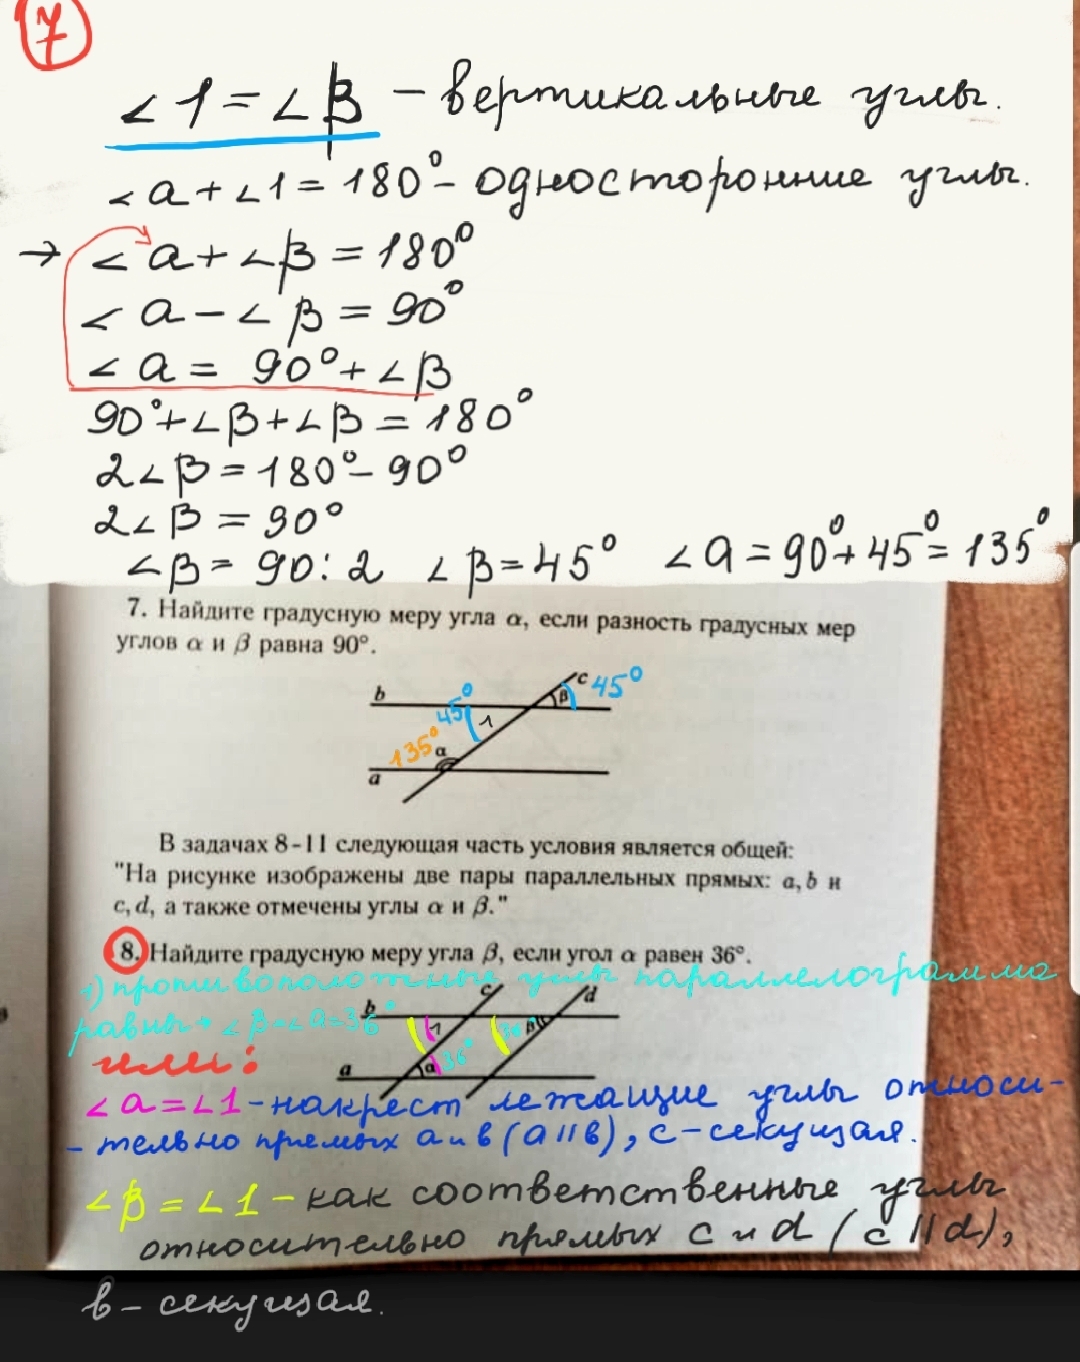 7
∠1 = ∠β – вертикальные углы.
∠a + ∠1 = 180° – односторонние углы.
→ ∠a + ∠β = 180°
∠a – ∠β = 90°
∠a = 90° + ∠β
90° + ∠β + ∠β = 180°
2∠β = 180° – 90°
2∠β = 90°
∠β = 90 : 2 ∠β = 45° ∠a = 90° + 45° = 135°
7. Найдите градусную меру угла α, если разность градусных мер
углов α и β равна 90°.
b 45° 1 c β 45°
135° α
a
В задачах 8-11 следующая часть условия является общей:
"На рисунке изображены две пары параллельных прямых: a, b и
c, d, а также отмечены углы α и β."
8. Найдите градусную меру угла β, если угол α равен 36°.
1) противоположные углы параллелограмма
равны → ∠β = ∠a = 36°
b 1 c 36° β d
или:
a α 36°
∠a = ∠1 – накрест лежащие углы относи-
- тельно прямых a и b (a || b), c – секущая.
∠β = ∠1 – как соответственные углы
относительно прямых c и d (c || d),
b – секущая.